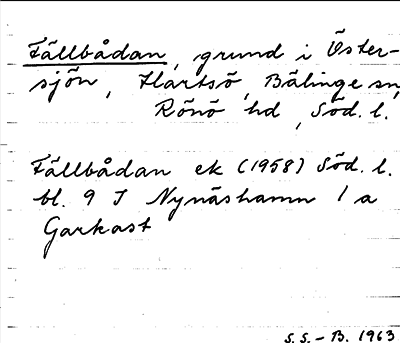 Fällbådan, grund i Öster-
sjön, Hartsö, Bälinge sn,
Rönö hd, Söd. l.
Fällbådan ek (1958) Söd. l.
bl. 9 I Nynäshamn 1 a
Garkast
S.S. - B. 1963